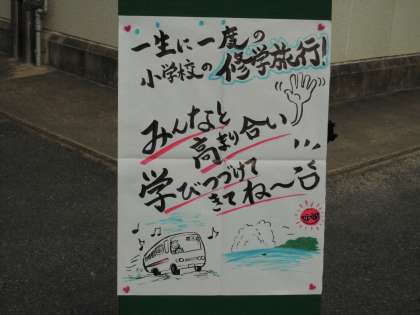 一生に一度の
小学校の修学旅行!
みんなと
高まり合い
学びつづけて
きてね〜